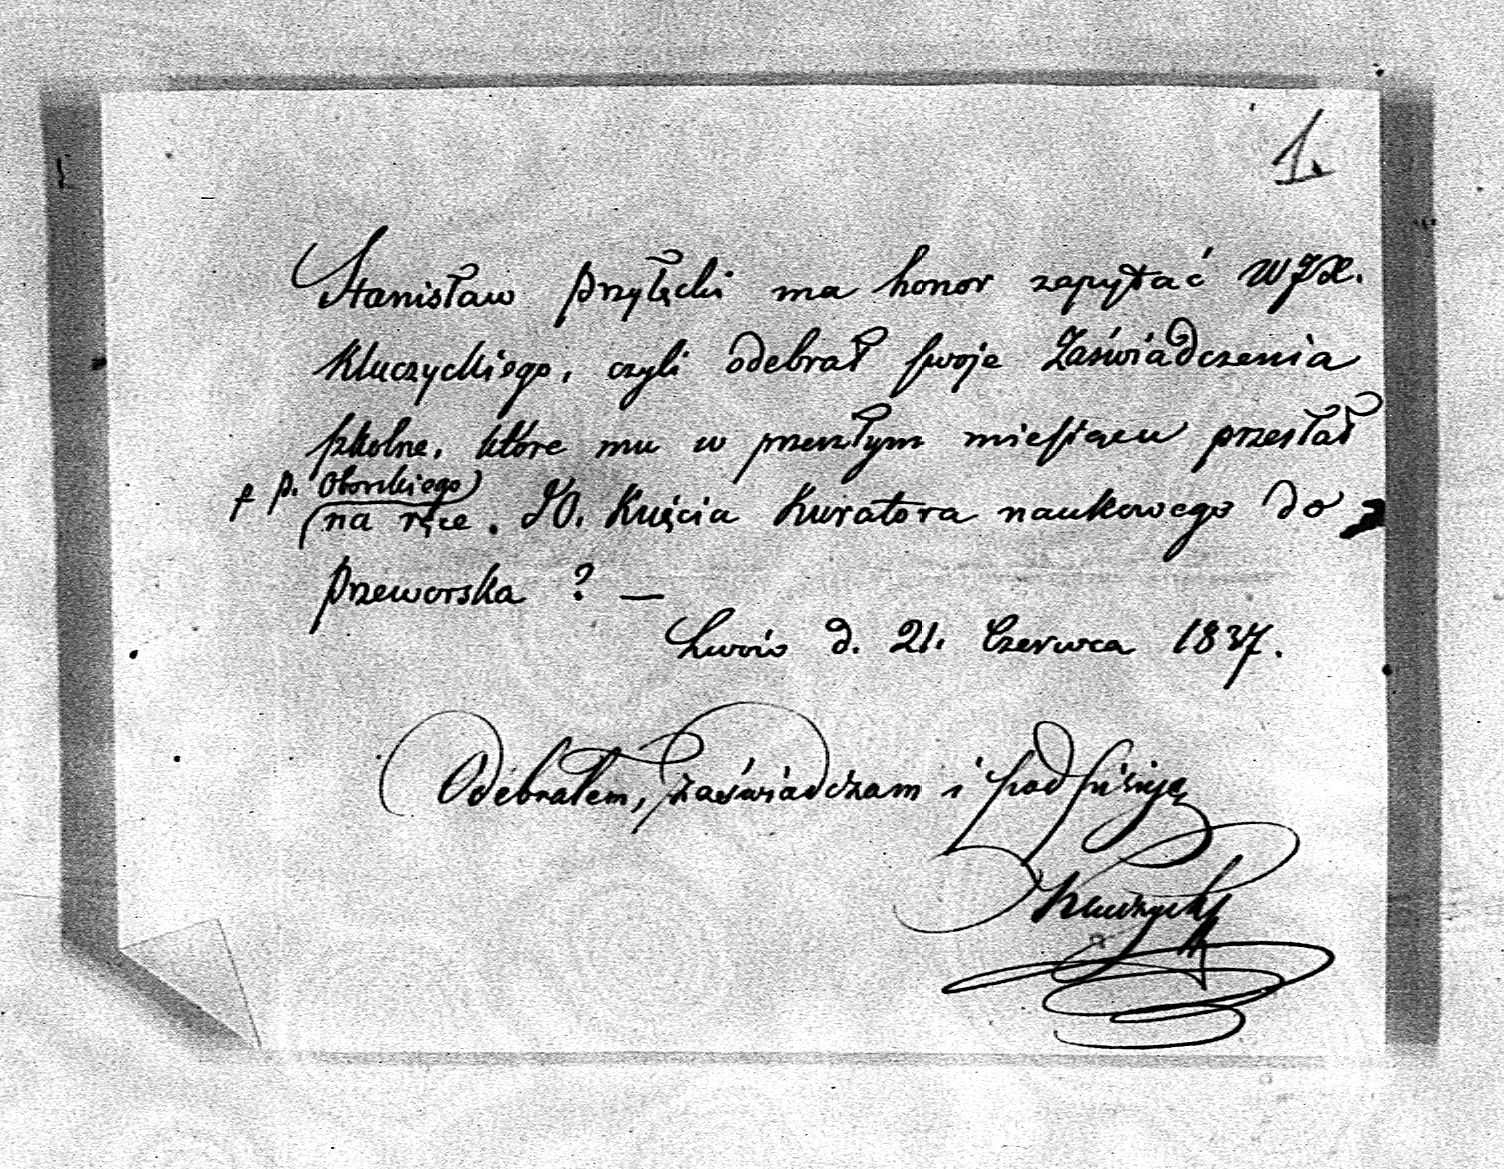 1.
Stanisław Przyłęcki ma honor zapytać WJX.
Kluczyckiego, czyli odebrał swoje Zaświadczenia
szkolne, które mu w przeszłym miesiącu przesłał
p. Oborskiego
na ręce . JO. Xcięcia Kuratora naukowego do
Przeworska ? —
Lwów d. 21. Czerwca 1837.
Odebrałem, zaświadczam i podpisuję
Kluczycki